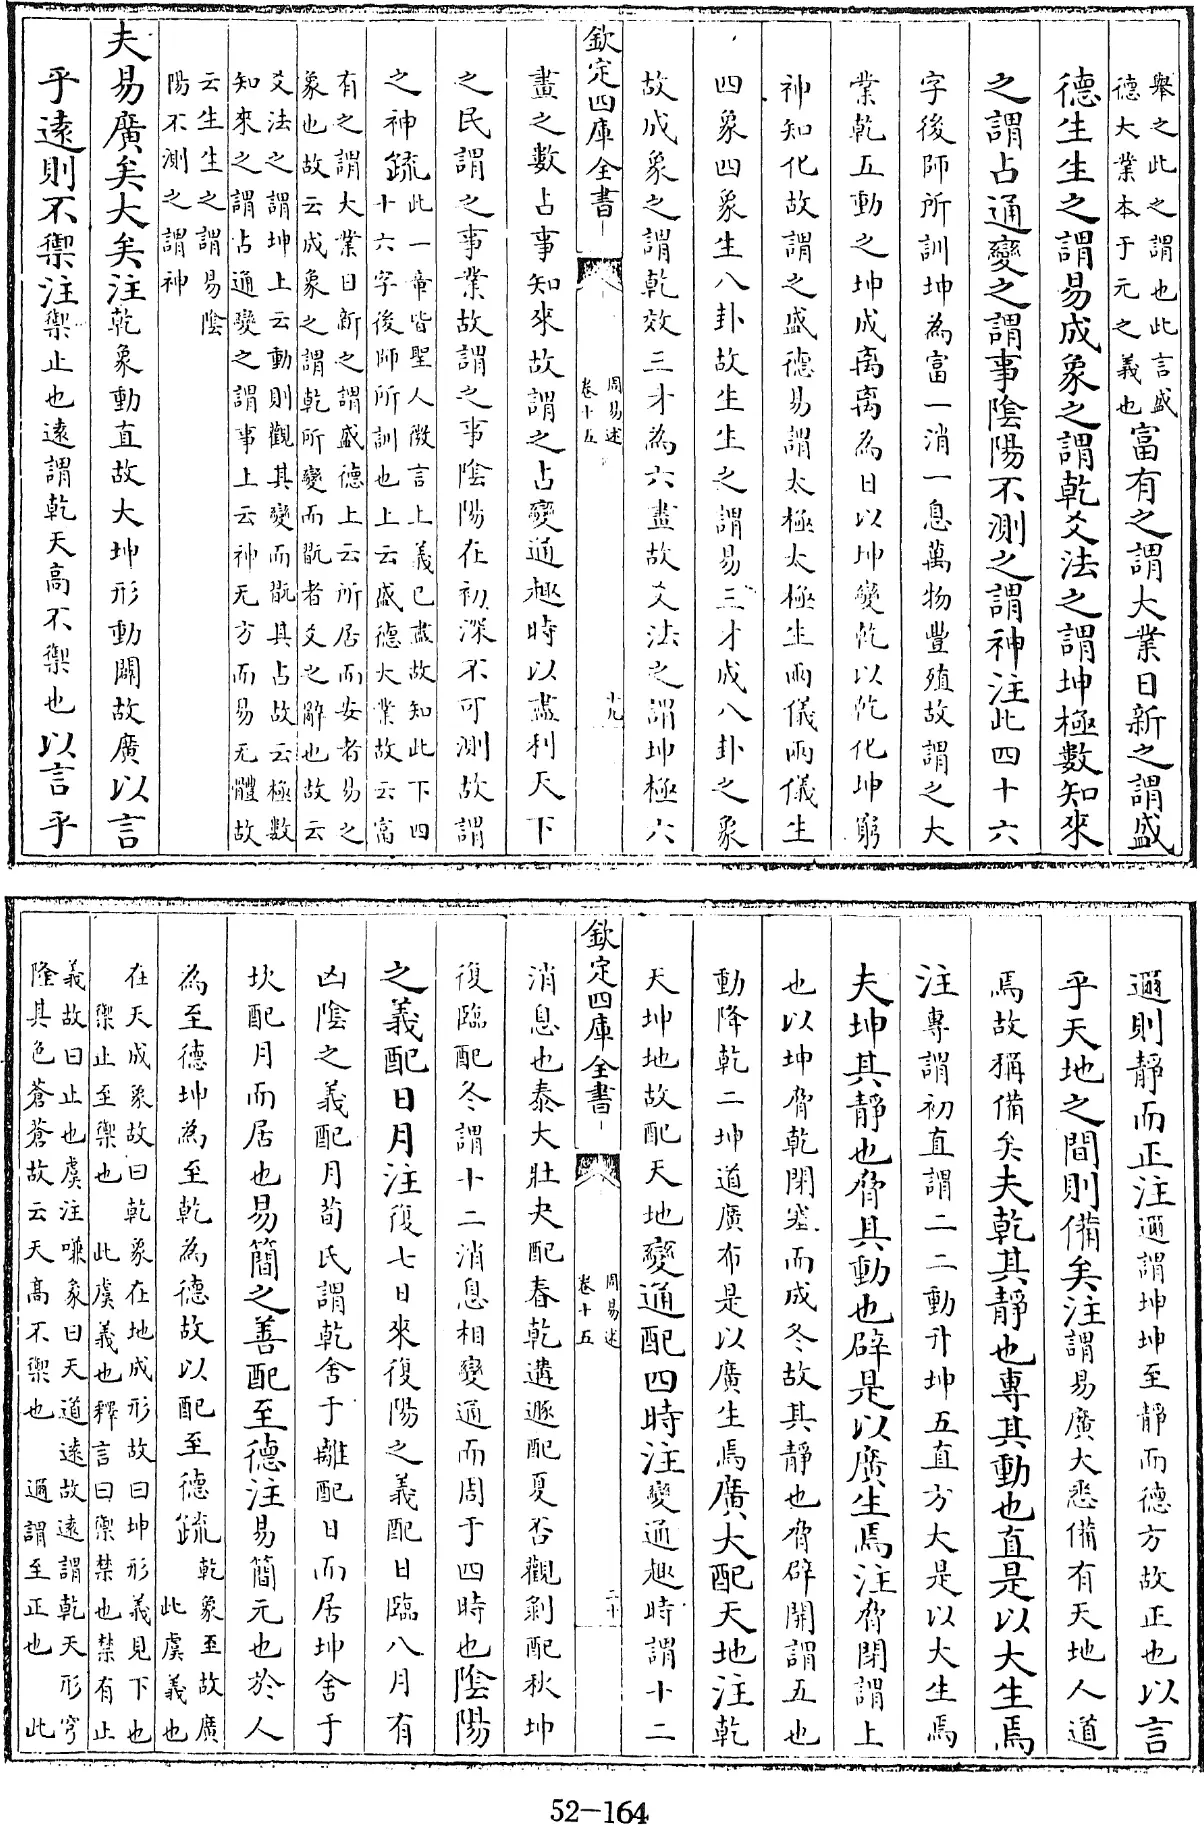 舉之此之謂也此言盛
德大業本于元之義也
富有之謂大業日新之謂盛
德生生之謂易成象之謂乾爻法之謂坤極數知來
之謂占通變之謂事陰陽不測之謂神注此四十六
字後師所訓坤為富一消一息萬物豐殖故謂之大
業乾五動之坤成离离為日以坤變乾以乾化坤窮
神知化故謂之盛德易謂太極太極生兩儀兩儀生
四象四象生八卦故生生之謂易三才成八卦之象
故成象之謂乾效三才為六畫故爻法之謂坤極六
欽定四庫全書
周易述
卷十五
十九
畫之數占事知來故謂之占變通趣時以盡利天下
之民謂之事業故謂之事陰陽在初深不可測故謂
之神疏
此一章皆聖人微言上義已盡故知此下四
十六字後師所訓也上云盛德大業故云富
有之謂大業日新之謂盛德上云所居而安者易之
象也故云成象之謂乾所變而翫者爻之辭也故云
爻法之謂坤上云動則觀其變而翫其占故云極數
知來之謂占通變之謂事上云神无方而易无體故
云生生之謂易陰
陽不測之謂神
夫易廣矣大矣注乾象動直故大坤形動闢故廣以言
乎遠則不禦注禦止也遠謂乾天高不禦也以言乎
邇則靜而正注邇謂坤坤至靜而德方故正也以言
乎天地之間則備矣注謂易廣大悉備有天地人道
焉故稱備矣夫乾其靜也專其動也直是以大生焉
注專謂初直謂二二動升坤五直方大是以大生焉
夫坤其靜也脅其動也辟是以廣生焉注脅閉謂上
也以坤脅乾閉塞而成冬故其靜也脅辟開謂五也
動降乾二坤道廣布是以廣生焉廣大配天地注乾
天坤地故配天地變通配四時注變通趣時謂十二
欽定四庫全書
周易述
卷十五
二十
消息也泰大壯夬配春乾遘遯配夏否觀剝配秋坤
復臨配冬謂十二消息相變通而周于四時也陰陽
之義配日月注復七日來復陽之義配日臨八月有
凶陰之義配月荀氏謂乾舍于離配日而居坤舍于
坎配月而居也易簡之善配至德注易簡元也於人
為至德坤為至乾為德故以配至德疏
乾象至故廣
此虞義也
在天成象故曰乾象在地成形故曰坤形義見下也
禦止至禦也 此虞義也釋言曰禦禁也禁有止
義故曰止也虞注嗛彖曰天道遠故遠謂乾天形穹
隆其色蒼蒼故云天高不禦也 邇謂至正也 此
52-164